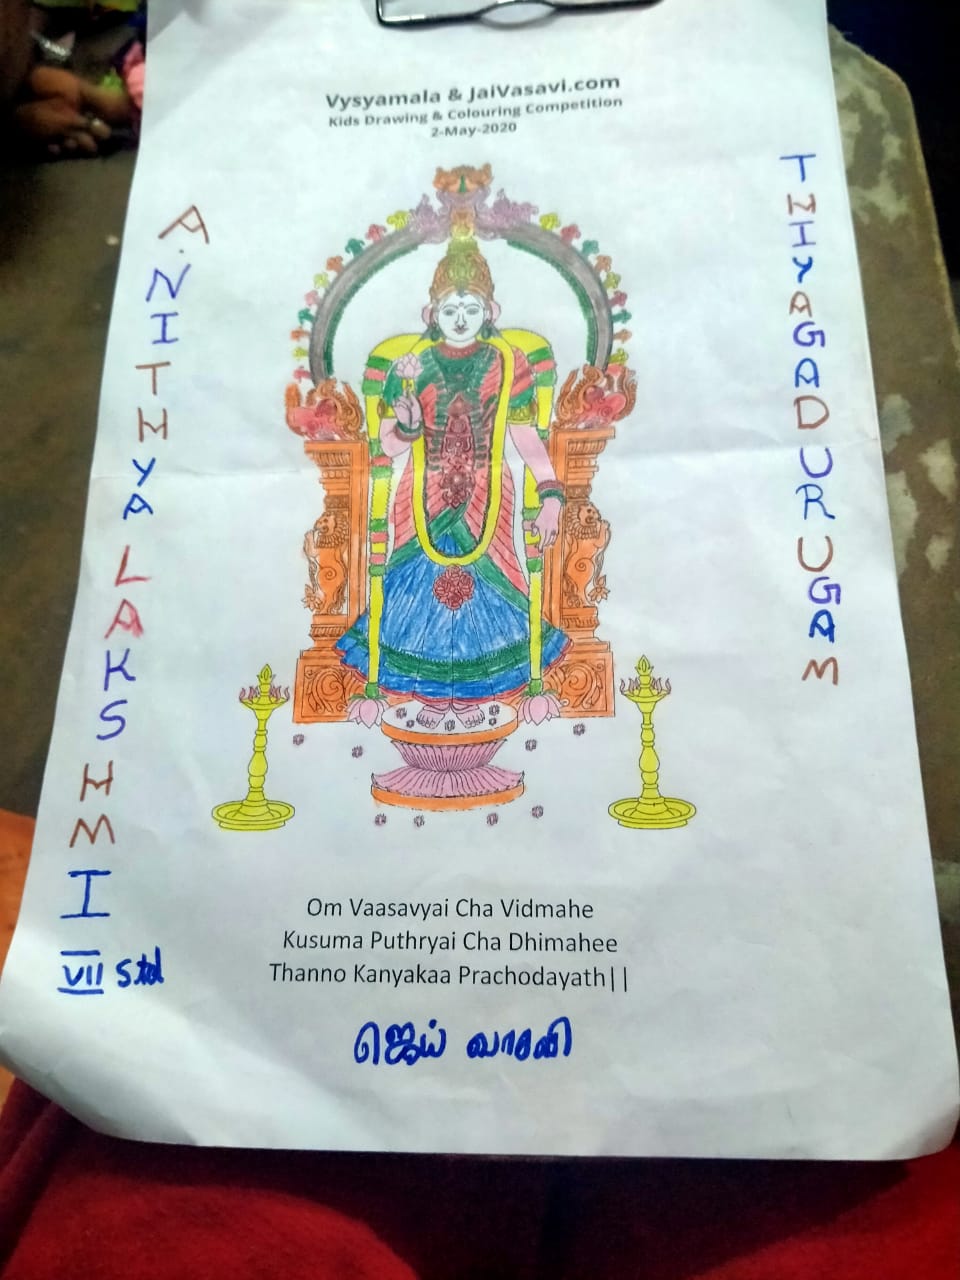 Vysyamala & JaiVasavi.com
Kids Drawing & Colouring Competition
2-May-2020
A.NITHYALAKSHMI
VII Std
THIYAGADURUGAM
Om Vaasavyai Cha Vidmahe
Kusuma Puthryai Cha Dhimahee
Thanno Kanyakaa Prachodayath||
ஜெய் வாசவி